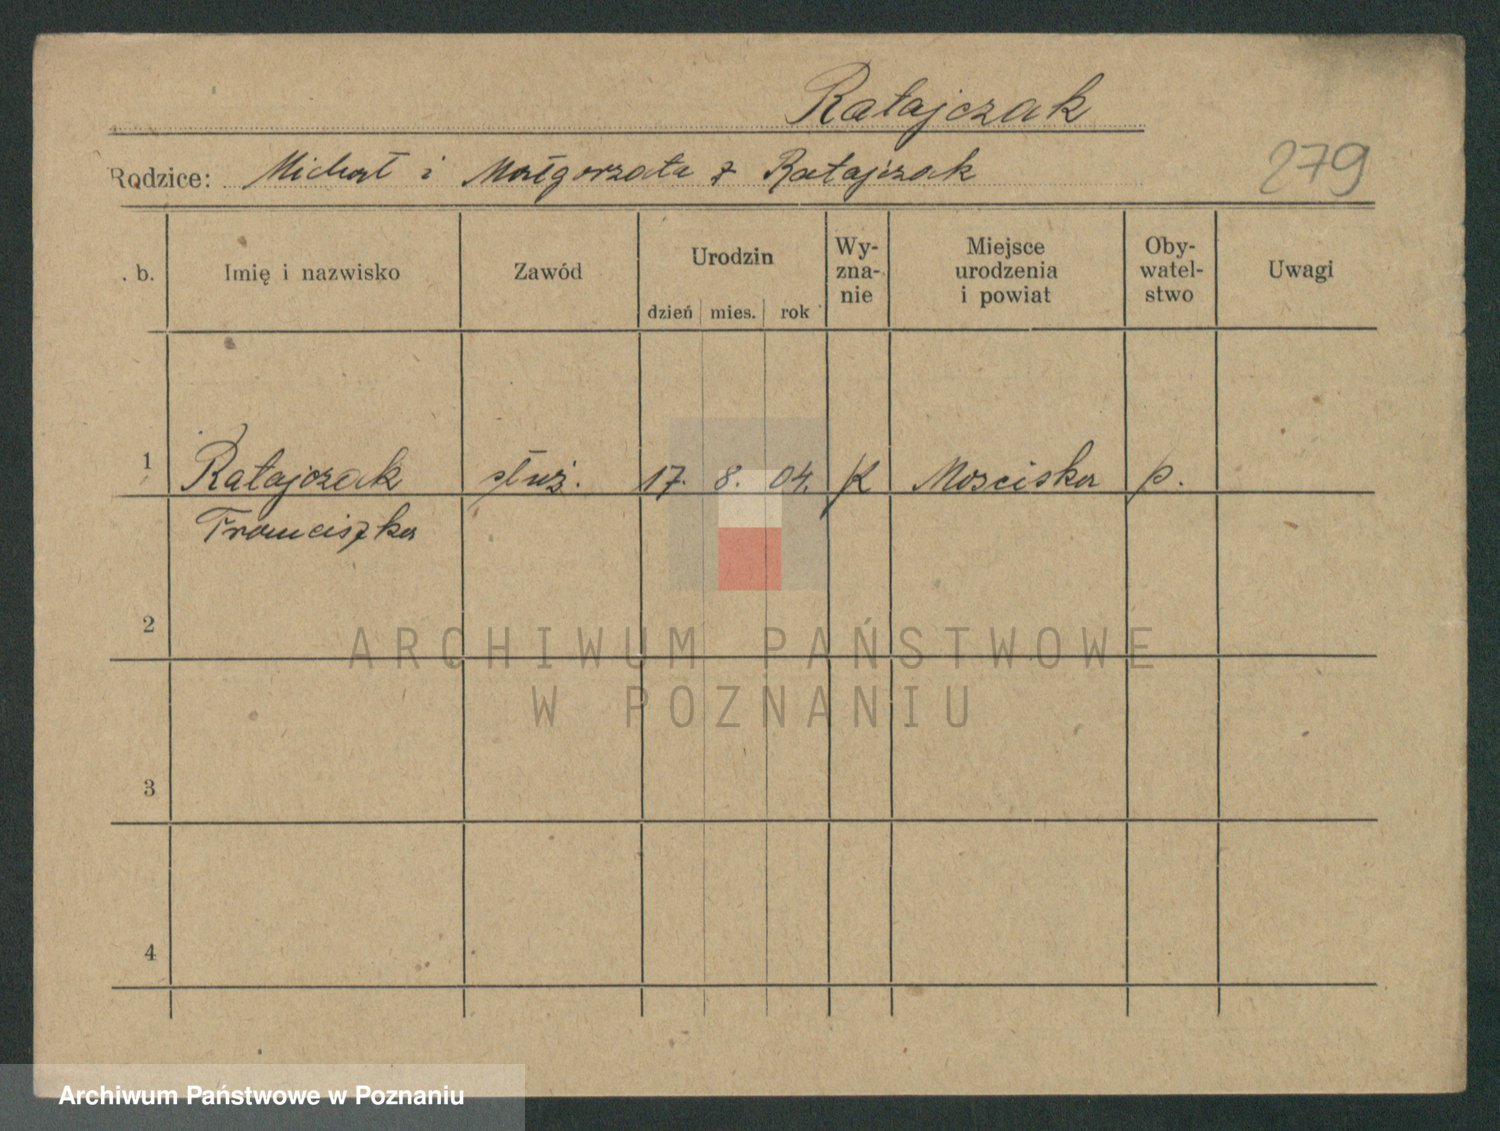 Ratajczak
Rodzice: Michał i Małgorzata z Ratajczak
279
. b.
Imię i nazwisko
Zawód
Urodzin
dzień mies. rok
Wy-
zna-
nie
Miejsce
urodzenia
i powiat
Oby-
watel-
stwo
Uwagi
1 Ratajczak służ. 17. 8. 04. K Mosciska p.
Franciszka
2
3
4
ARCHIWUM PAŃSTWOWE
W POZNANIU
Archiwum Państwowe w Poznaniu